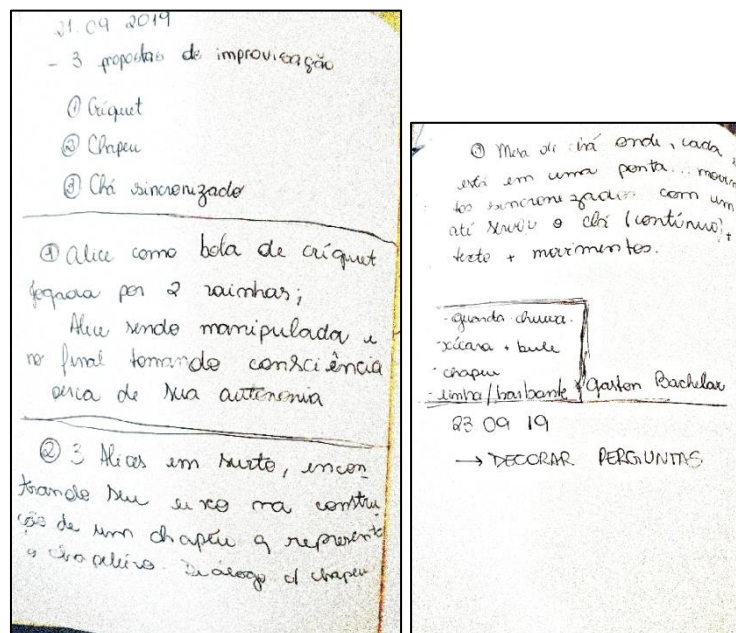 21.09 2019
- 3 propostas de improvisação
① Críquet
② Chapeu
③ Chá sincronizado
① Alice como bola de críquet
jogada por 2 rainhas;
Alice sendo manipulada e
no final tomando consciência
acerca de sua autonomia
② 3 Alices em surto, encon
trando seu eixo na constru
ção de um chapéu q represente
o chapeleiro. Diálogo c/ chapeu
③ Mesa de chá onde, cada
está em uma ponta... movim
tos sincronizados com um
até servir o chá (contínuo)+
texto + movimentos.
- guarda-chuva.
- xícara + bule
- chapeu
- linha/barbante * Gaston Bachelar
23 09 19
→ DECORAR PERGUNTAS